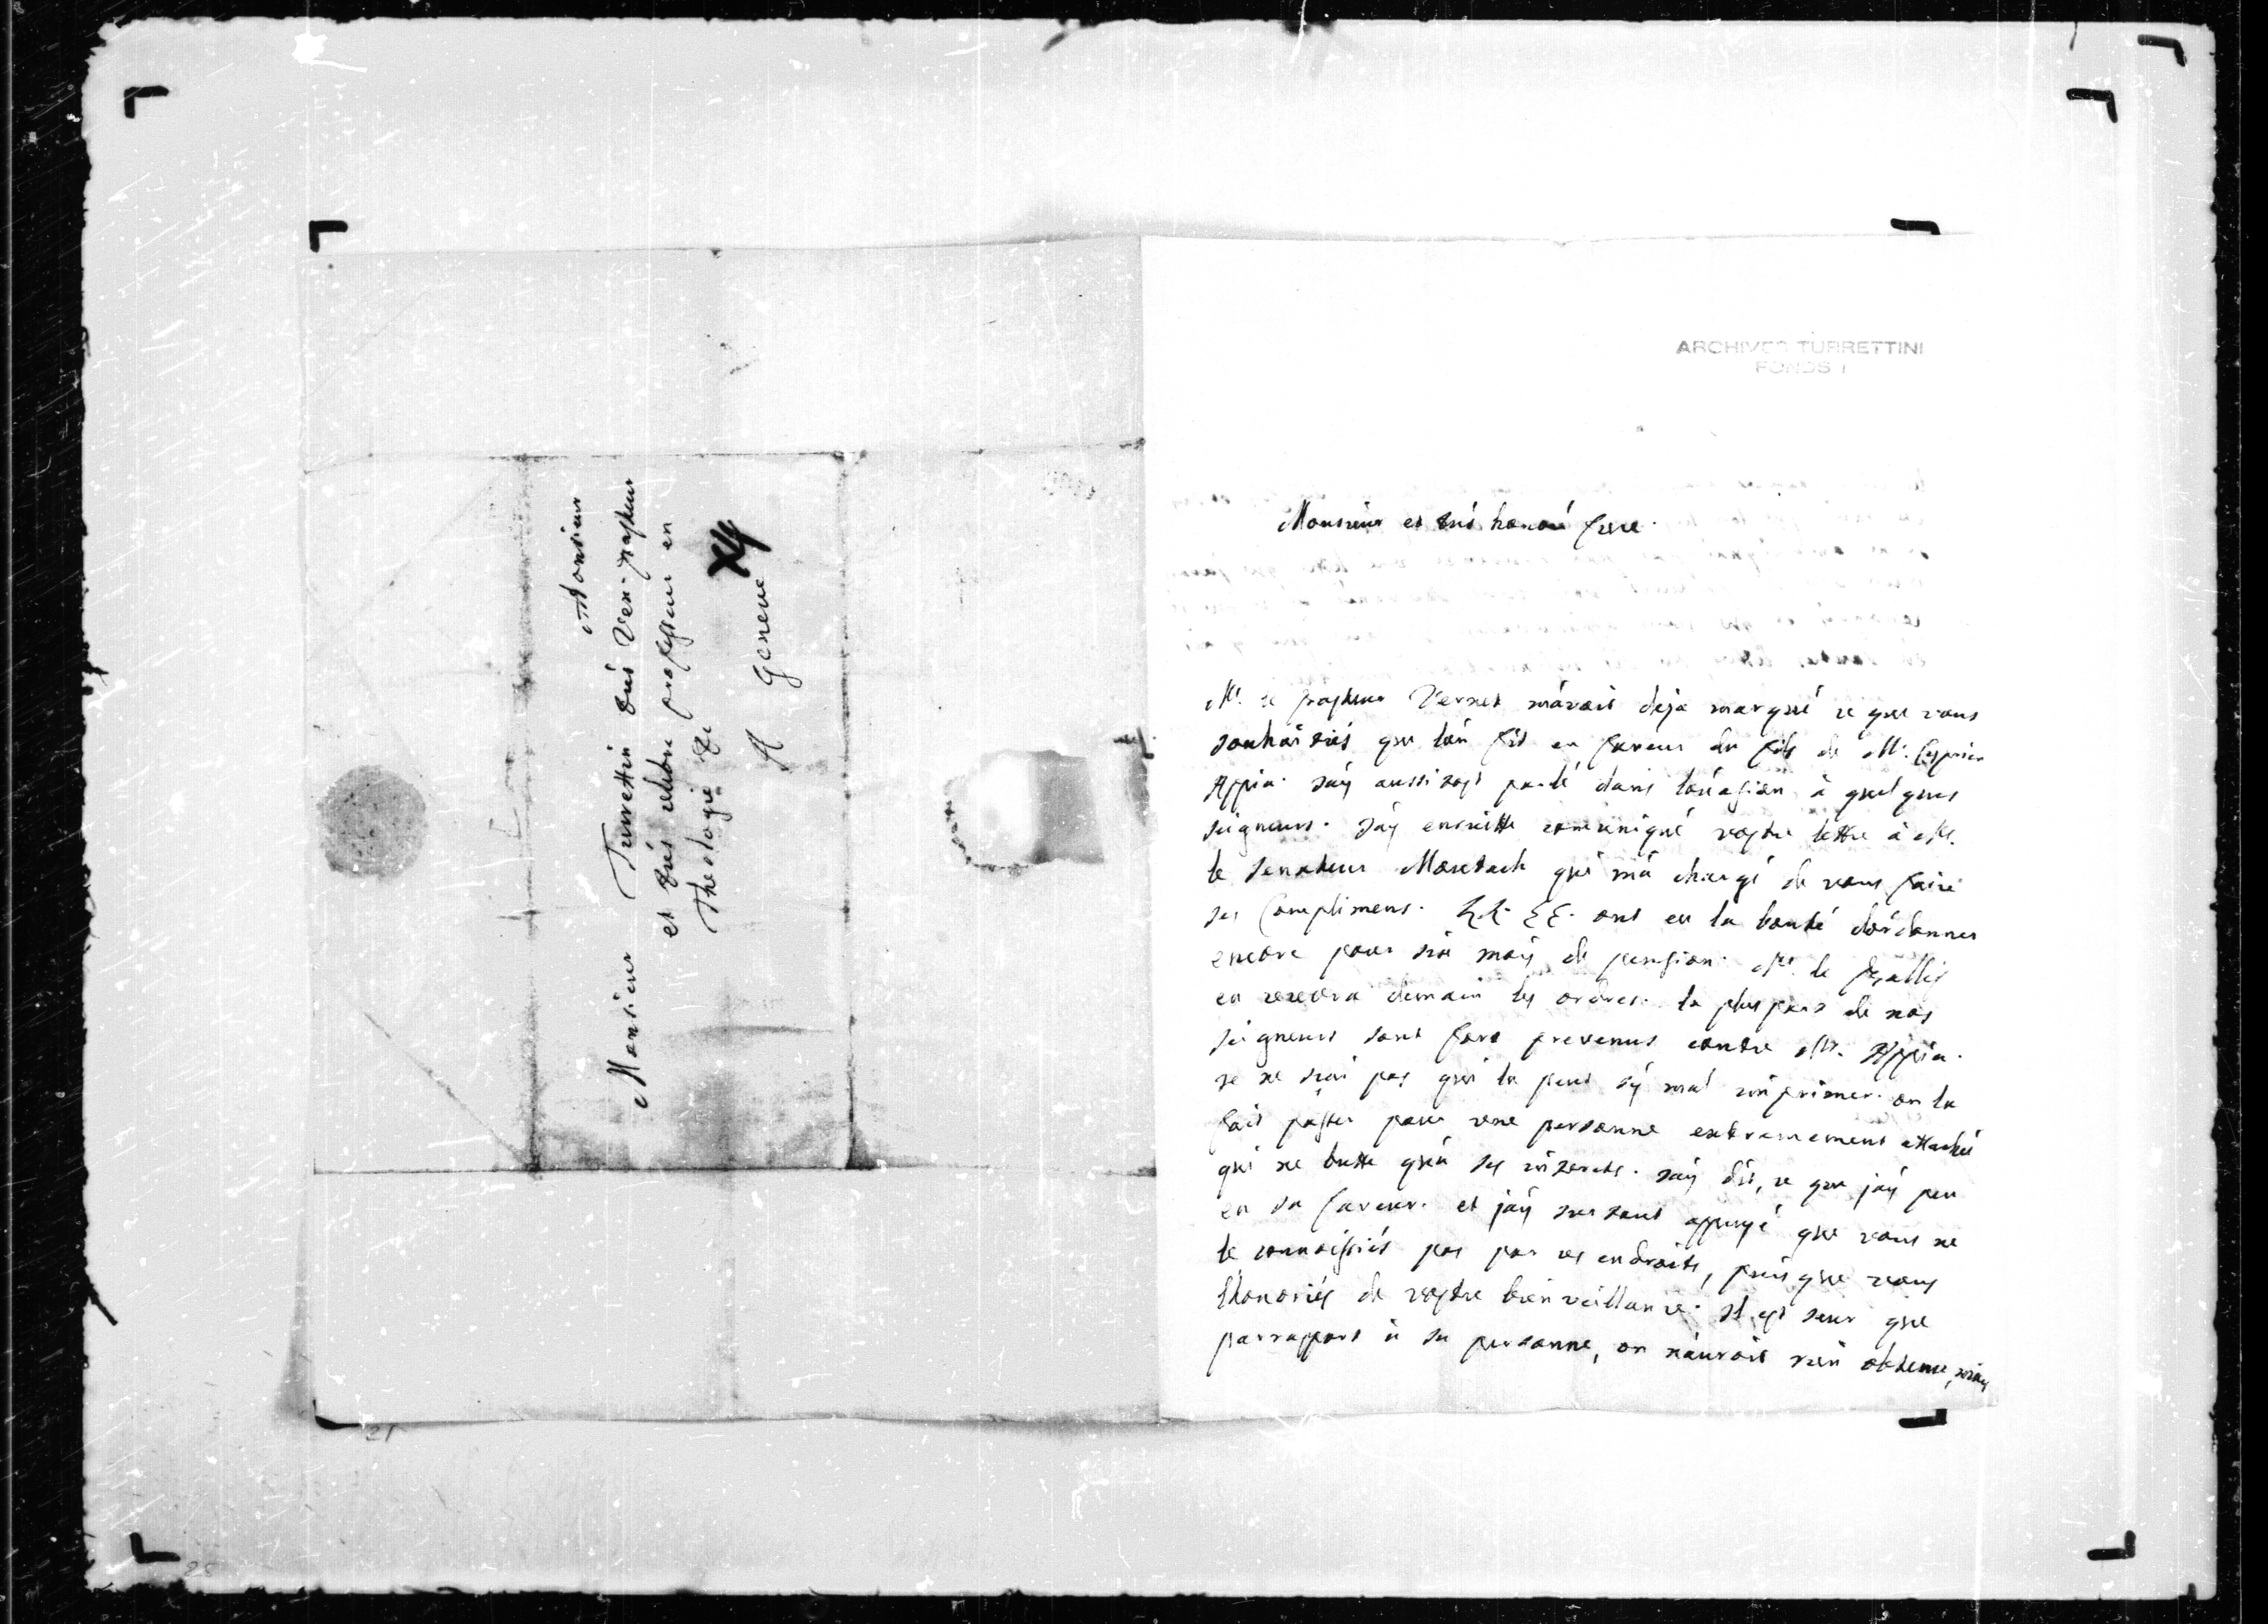 A Monsieur
Monsieur Turrettin trés Ven. pasteur
et trés celebre professeur en
Theologie &c
A Geneve
ARCHIVES TURRETTINI
FONDS I
Monsieur et trés honoré frere.
Mr. le pasteur Vernet m'avoit deja marqué ce que vous
souhaittiés que l'on fit en faveur du fils de Mr. Cyprien
Appia. J'ay aussitost parlé dans l'occasion à quelques
seigneurs. J'ay ensuitte communiqué vostre lettre à Mr.
le senateur Morlach qui m'a chargé de vous faire
ses Complimens. LL. EE. ont eu la bonté d'ordonner
encore pour six mois de pension. Mr. le
en recevra demain les ordres. la plus part de nos
seigneurs sont fort prevenus contre Mr. Appia.
je ne sçai pas qui la peut sy mal imprimer. on la
fait passer pour une personne extremement attaché
qui ne butte qu'a ses interets. J'ay dit, ce que j'ay peu
en sa faveur. et j'ay surtout appuyé que vous ne
le connoissiés pas par ces endroits, puis que vous
l'honoriés de vostre bienveillance. Il est seur que
par rapport à sa personne, on n'auroit rien obtenu,
21
28